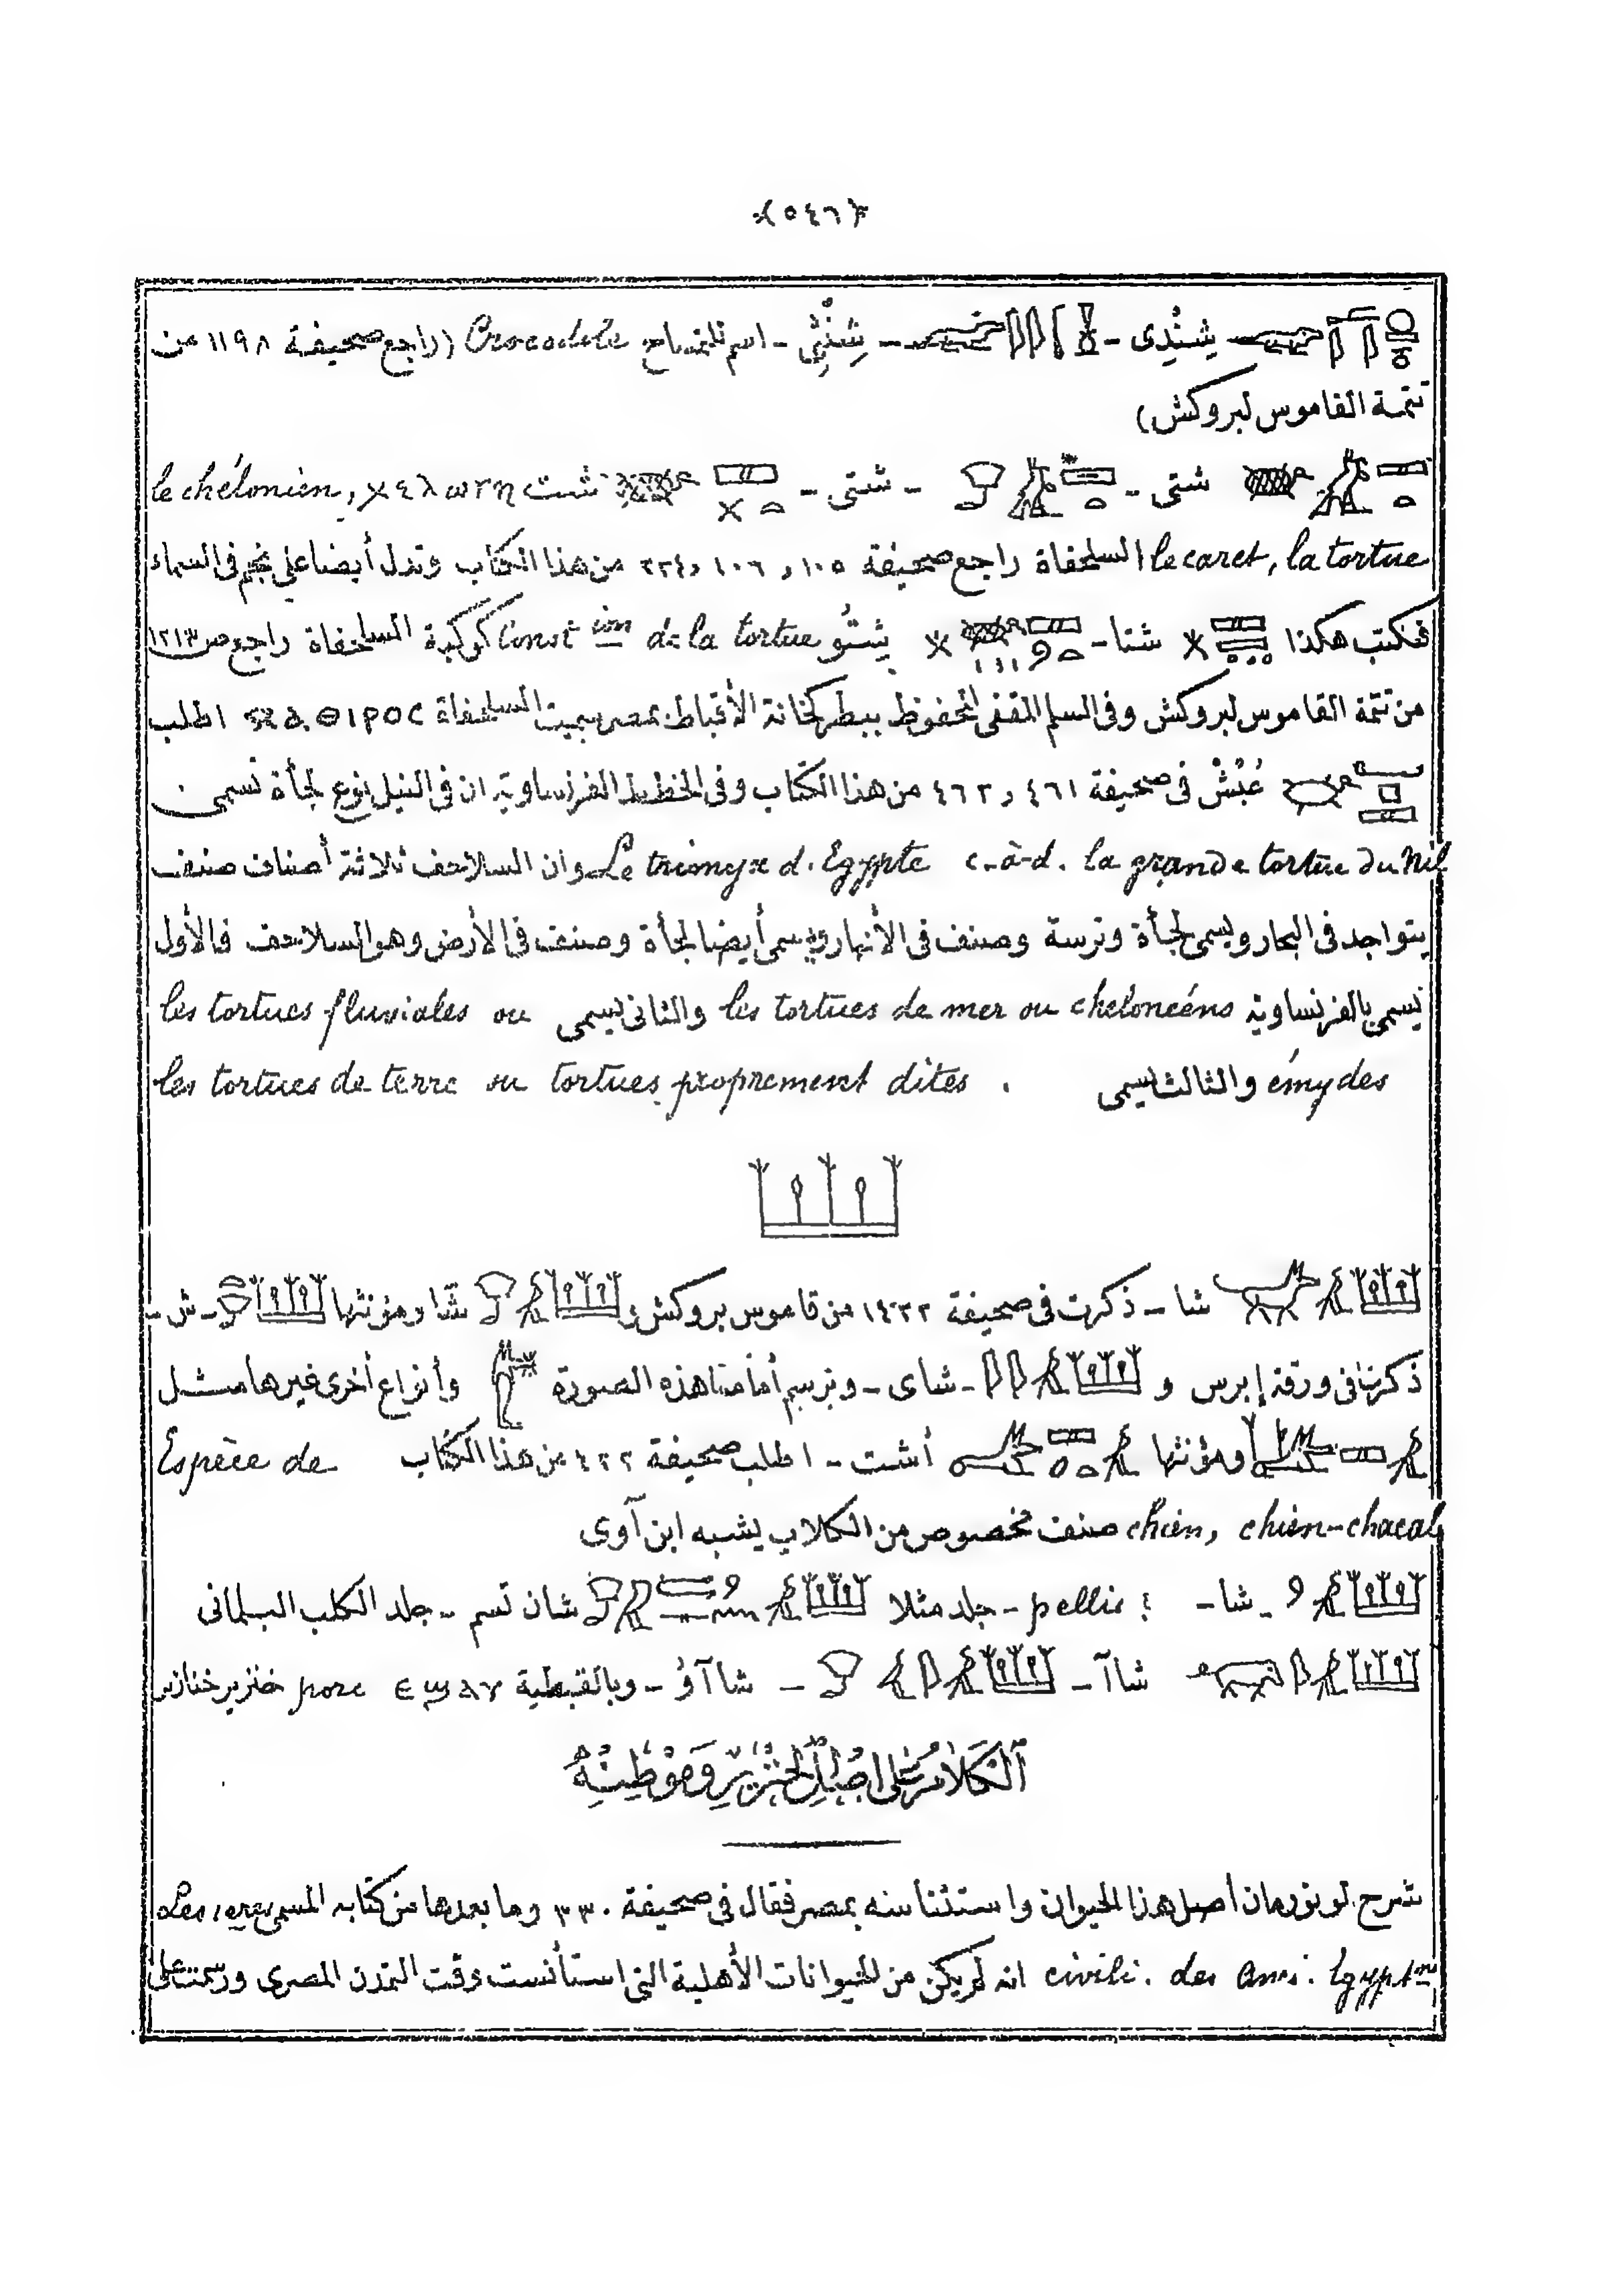 ﴿٥٤٦﴾
شِنْدِى - شِنْتِى - اسم للتمساح Crocodile (راجع صحيفة ١١٩٨ من
تتمة القاموس لبروكش)
شتى - شتى - شت le chélonien, χελωνη
le caret, la tortue السلحفاة راجع صحيفة ١٠٥ و ١٠٦ و ٢٢٤ من هذا الكتاب وتدل أيضا على نجم فى السماء
فتكتب هكذا شتا - شتُو Const ion de la tortue كوكبة السلحفاة راجع ص ١٢١٣
من تتمة القاموس لبروكش وفى السلم المقفى المحفوظ ببطركخانة الأقباط بمصر سميت السلحفاة اطلب
عُبْشْ فى صحيفة ٤٦١ و ٤٦٢ من هذا الكتاب وفى الخطط الفرنساوية ان فى النيل نوع لجأة تسمى
Le trionyx d'Egypte c-à-d. la grande tortue du Nil وان السلاحف ثلاثة أصناف صنف
يتواجد فى البحار ويسمى لجأة وترسة وصنف فى الأنهار ويسمى أيضا لجأة وصنف فى الأرض وهو السلاحف فالأول
يسمى بالفرنساوية les tortues de mer ou cheloncéns والثانى يسمى les tortues fluviales ou
émydes والثالث يسمى les tortues de terre ou tortues proprement dites .
شا - ذكرت فى صحيفة ١٤٣٢ من قاموس بروكش و شا ومؤنثها - ش -
ذكرت فى ورقة إبرس و - شاى - وترسم أمامنا هذه الصورة وأنواع أخرى غيرها مثل
ومؤنثها أشت - اطلب صحيفة ٤٢٢ من هذا الكتاب Espèce de
chien, chien-chacal صنف مخصوص من الكلاب يشبه ابن آوى
- شا - pellis - جلد مثلا شان تسم - جلد الكلب السلمانى
شاآ - - شاآوُ - وبالقبطية ⲉϣⲁⲩ porc خنزير خنازير
الكلام على اصل الخنزير وموطنه
شرح لونورمان أصل هذا الحيوان واستئناسه بمصر فقال فى صحيفة ٣٣٠ وما بعدها من كتابه المسمى Les
civili. des Egyptns انه لم يكن من الحيوانات الأهلية التى استأنست وقت التمدن المصرى ورسمت على